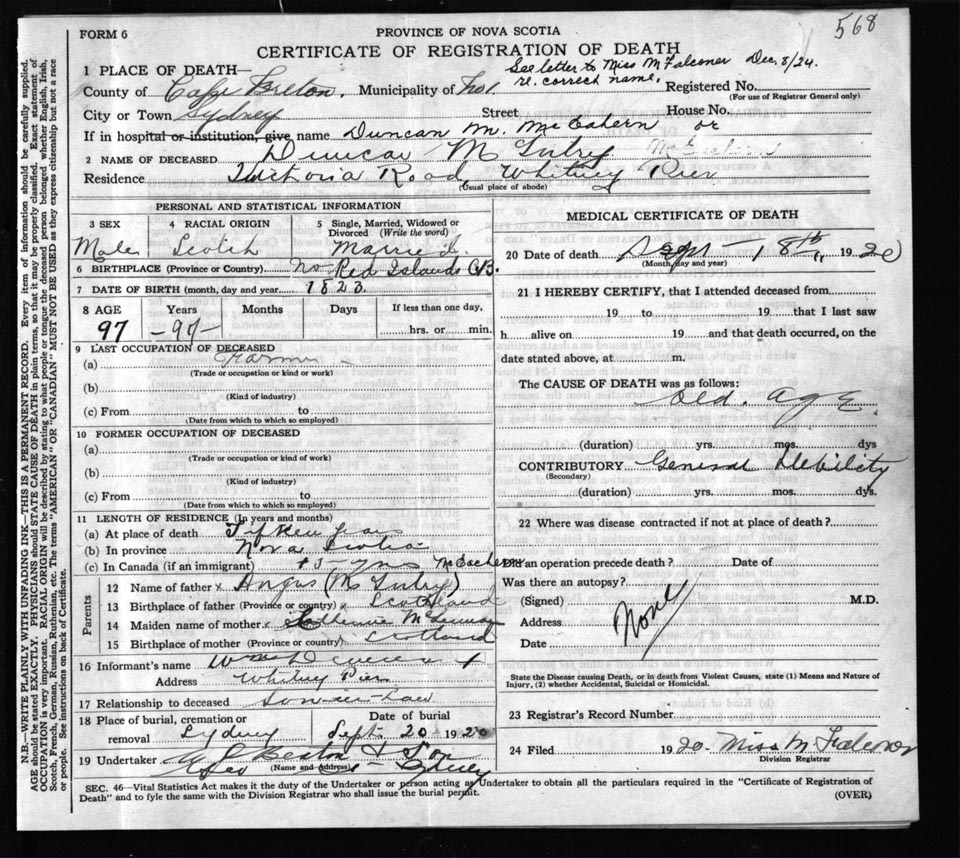 568
FORM 6
PROVINCE OF NOVA SCOTIA
CERTIFICATE OF REGISTRATION OF DEATH
See letter to Miss M Falconer Dec. 8/24.
re. correct name.
1 PLACE OF DEATH—
County of Cape Breton. Municipality of Registered No.
(For use of Registrar General only)
City or Town Sydney Street House No.
If in hospital or institution, give name Duncan M. McEahern or
2 NAME OF DECEASED Duncan
Residence Victoria Road Whitney Pier
(Usual place of abode)
PERSONAL AND STATISTICAL INFORMATION
3 SEX
Male
4 RACIAL ORIGIN
Scotch
5 Single, Married, Widowed or Divorced (Write the word)
Married
6 BIRTHPLACE (Province or Country) Red Islands C.B.
7 DATE OF BIRTH (month, day and year) 1823
8 AGE Years Months Days If less than one day,
97 —97— hrs. or min.
9 LAST OCCUPATION OF DECEASED
(a) Farmer
(Trade or occupation or kind or work)
(b)
(Kind of industry)
(c) From to
(Date from which to which so employed)
10 FORMER OCCUPATION OF DECEASED
(a)
(Trade or occupation or kind of work)
(b)
(Kind of industry)
(c) From to
(Date from which to which so employed)
11 LENGTH OF RESIDENCE (In years and months)
(a) At place of death Fifteen years
(b) In province Nova Scotia
(c) In Canada (if an immigrant)
McEachern
Parents
12 Name of father x Angus
13 Birthplace of father (Province or country) x Scotland
14 Maiden name of mother x Catherine
15 Birthplace of mother (Province or country) Scotland
16 Informant's name
Address Whitney Pier
17 Relationship to deceased Son-in-Law
18 Place of burial, cremation or removal Sydney
Date of burial
Sept. 20 1920
19 Undertaker & Son
(Name and Address) Sydney
MEDICAL CERTIFICATE OF DEATH
20 Date of death Sept — 18th 1920
(Month, day and year)
21 I HEREBY CERTIFY, that I attended deceased from
19 to 19 that I last saw
h alive on 19 and that death occurred, on the
date stated above, at m.
The CAUSE OF DEATH was as follows:
Old. age.
(duration) yrs. mos. dys
CONTRIBUTORY General Debility
(Secondary)
(duration) yrs. mos. dys.
22 Where was disease contracted if not at place of death?
Did an operation precede death? Date of
Was there an autopsy?
(Signed) M.D.
Address None
Date
State the Disease causing Death, or in death from Violent Causes, state (1) Means and Nature of Injury, (2) whether Accidental, Suicidal or Homicidal.
23 Registrar's Record Number
24 Filed 1920. Miss M Falconer
Division Registrar
SEC. 46—Vital Statistics Act makes it the duty of the Undertaker or person acting as Undertaker to obtain all the particulars required in the "Certificate of Registration of
Death" and to fyle the same with the Division Registrar who shall issue the burial permit.
(OVER)
N.B.—WRITE PLAINLY WITH UNFADING INK—THIS IS A PERMANENT RECORD. Every item of information should be carefully supplied.
AGE should be stated EXACTLY. PHYSICIANS should STATE CAUSE OF DEATH in plain terms, so that it may be properly classified. Exact statement of
OCCUPATION is very important. RACIAL ORIGIN will be described by stating to what people or tongue the deceased person belonged whether English, Irish,
Scotch, French, German, Russian, Ruthenian, etc. The terms "AMERICAN" OR "CANADIAN" MUST NOT BE USED as they express citizenship but not a race
or people. See instructions on back of Certificate.